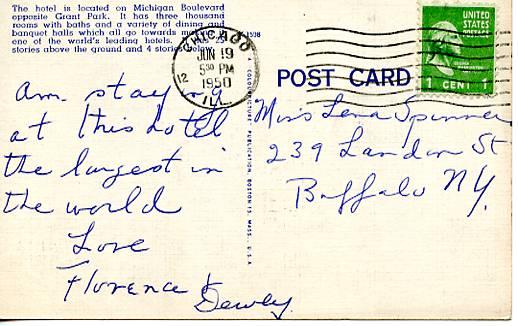 The hotel is located on Michigan Boulevard
opposite Grant Park. It has three thousand
rooms with baths and a variety of dining and
banquet halls which all go towards
one of the world's leading hotels.
stories above the ground and 4 stories below.
CHICAGO
JUN 19
5 30 PM
1950
ILL.
12
UNITED
STATES
POSTAGE
GEORGE WASHINGTON
1 CENT 1
POST CARD
A COLOURPICTURE PUBLICATION, BOSTON 15, MASS. U.S.A
am staying
at this hotel
the largest in
the world
Love
Florence &
Dewey
Miss Lena Spinner
239 Landon St
Buffalo NY.